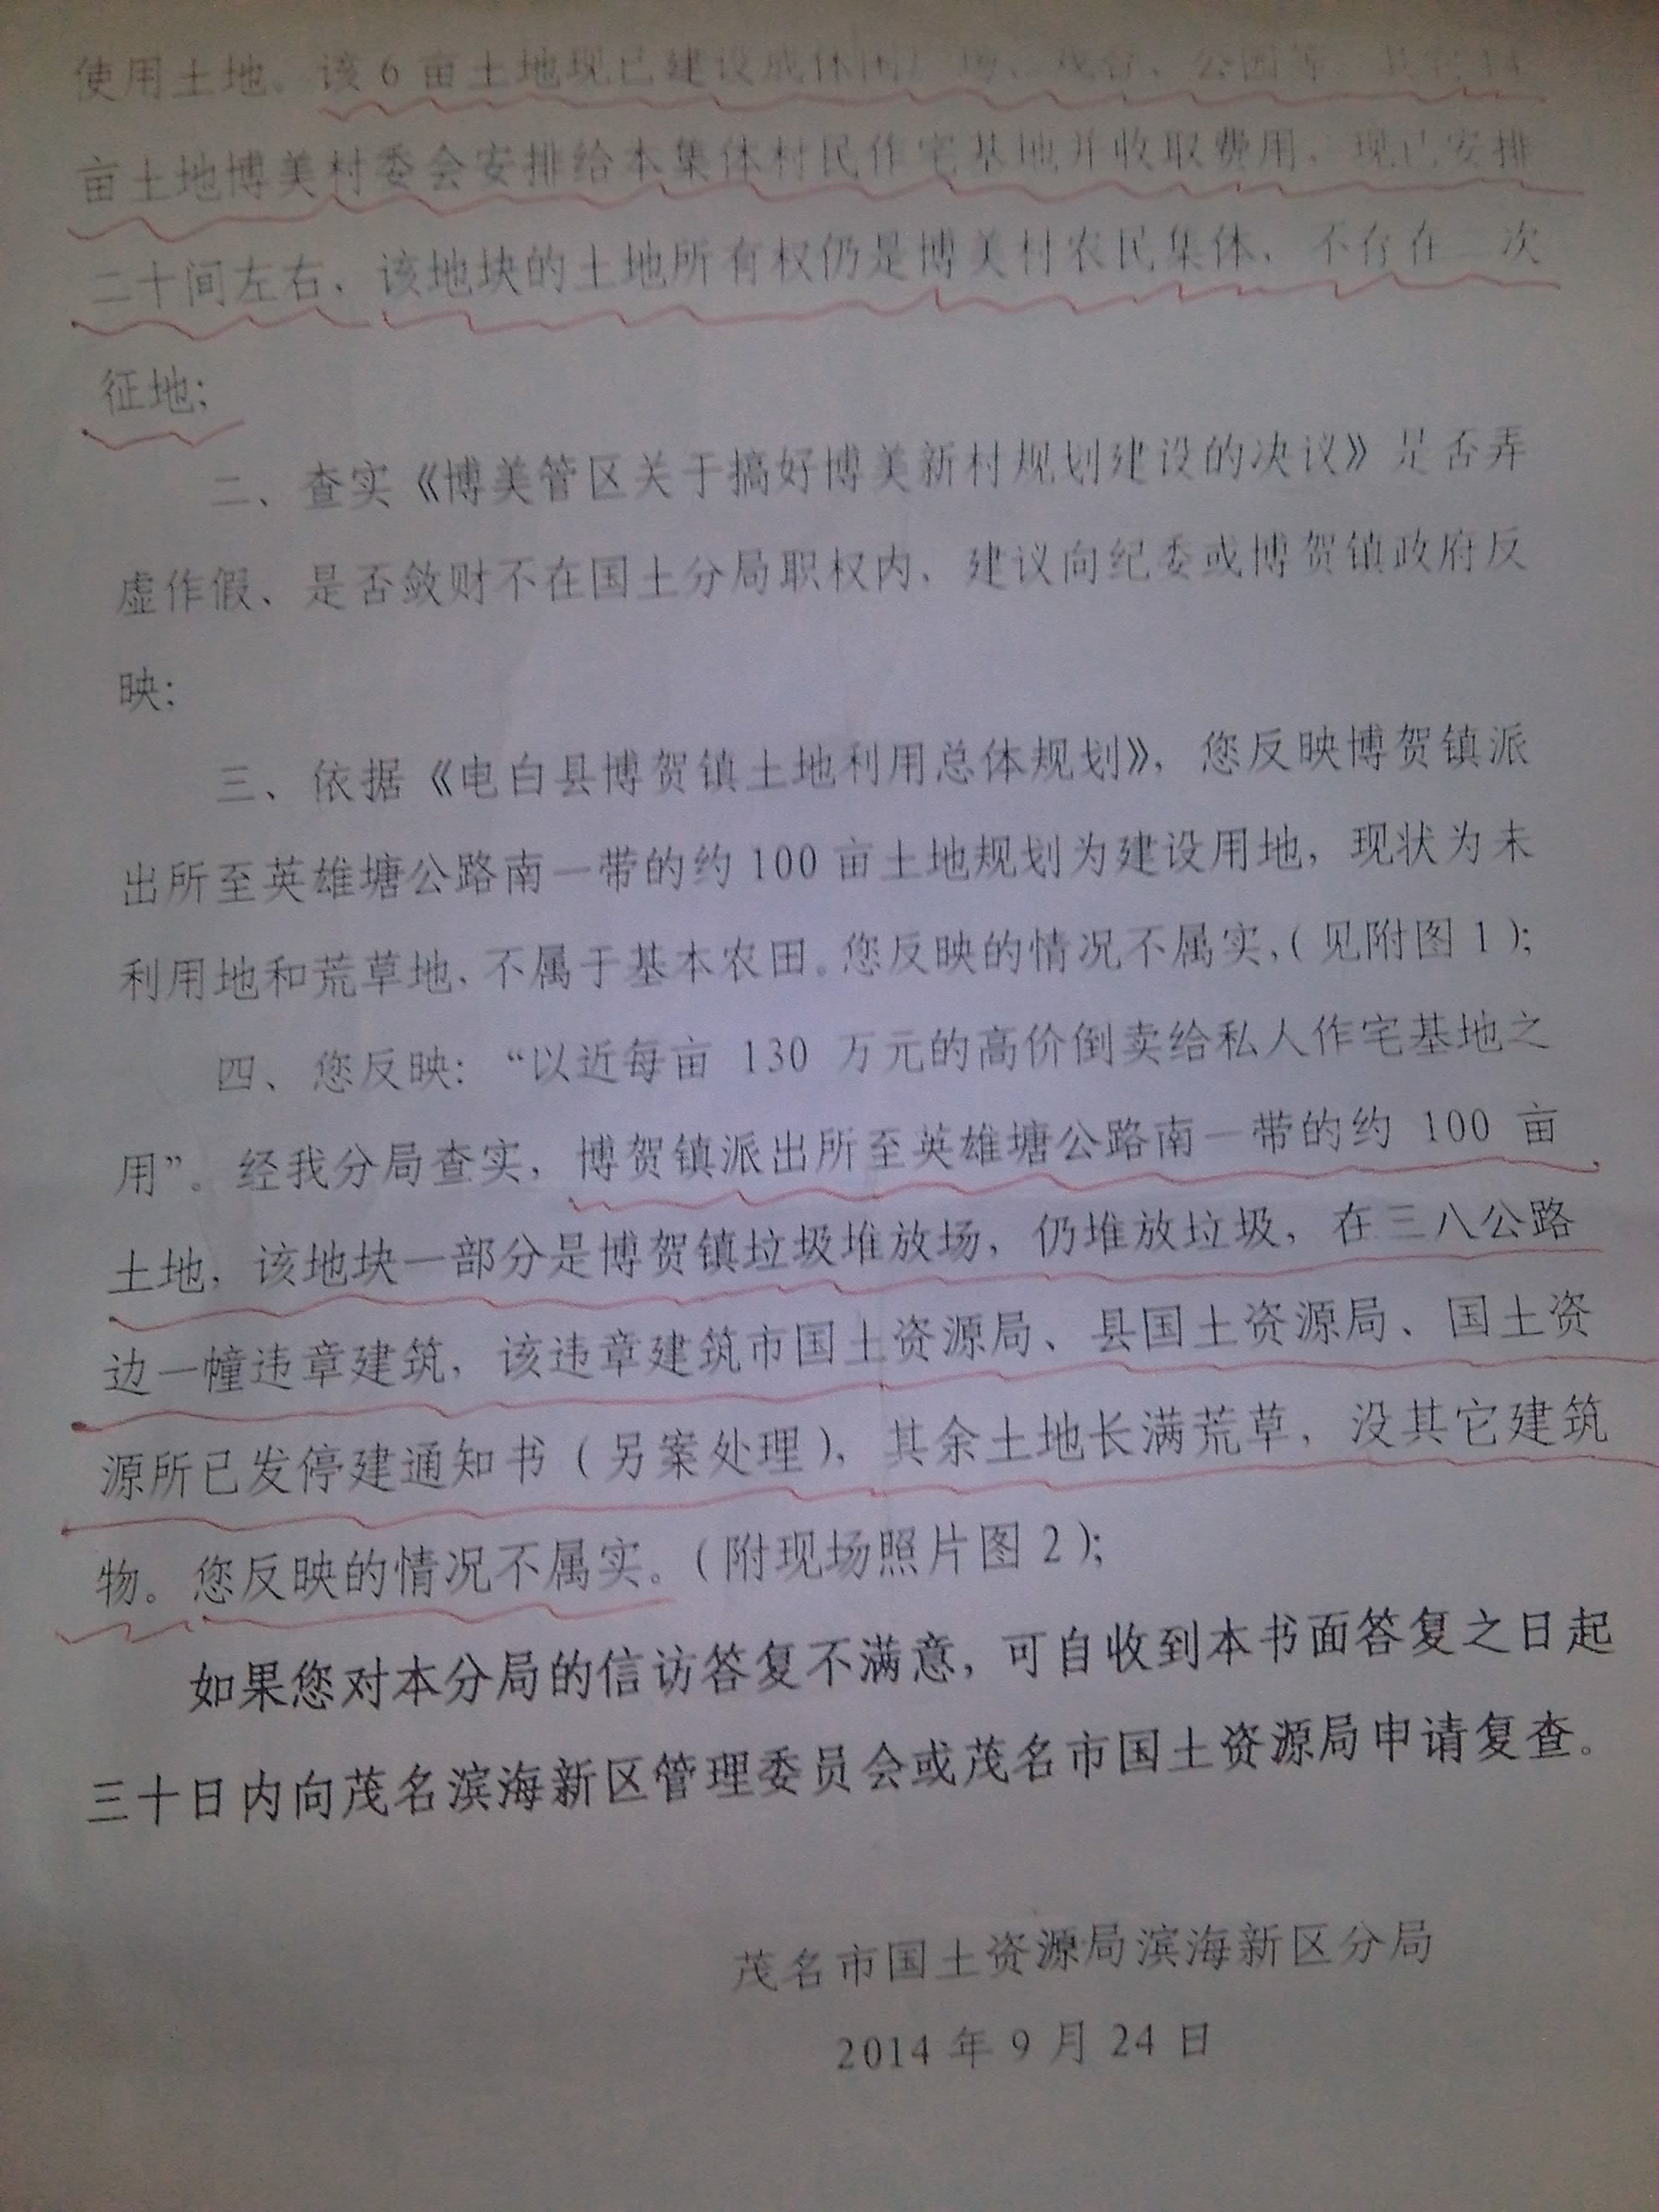 使用土地。该6亩土地现已建设成休闲广场、戏台、公园等。其它14
亩土地博美村委会安排给本集体村民作宅基地并收取费用，现已安排
二十间左右，该地块的土地所有权仍是博美村农民集体，不存在二次
征地；
二、查实《博美管区关于搞好博美新村规划建设的决议》是否弄
虚作假、是否敛财不在国土分局职权内，建议向纪委或博贺镇政府反
映；
三、依据《电白县博贺镇土地利用总体规划》，您反映博贺镇派
出所至英雄塘公路南一带的约100亩土地规划为建设用地，现状为未
利用地和荒草地，不属于基本农田。您反映的情况不属实，（见附图1）；
四、您反映：“以近每亩 130 万元的高价倒卖给私人作宅基地之
用”。经我分局查实，博贺镇派出所至英雄塘公路南一带的约 100 亩
土地，该地块一部分是博贺镇垃圾堆放场，仍堆放垃圾，在三八公路
边一幢违章建筑，该违章建筑市国土资源局、县国土资源局、国土资
源所已发停建通知书（另案处理），其余土地长满荒草，没其它建筑
物。您反映的情况不属实。（附现场照片图2）；
如果您对本分局的信访答复不满意，可自收到本书面答复之日起
三十日内向茂名滨海新区管理委员会或茂名市国土资源局申请复查。
茂名市国土资源局滨海新区分局
2014年9月24日